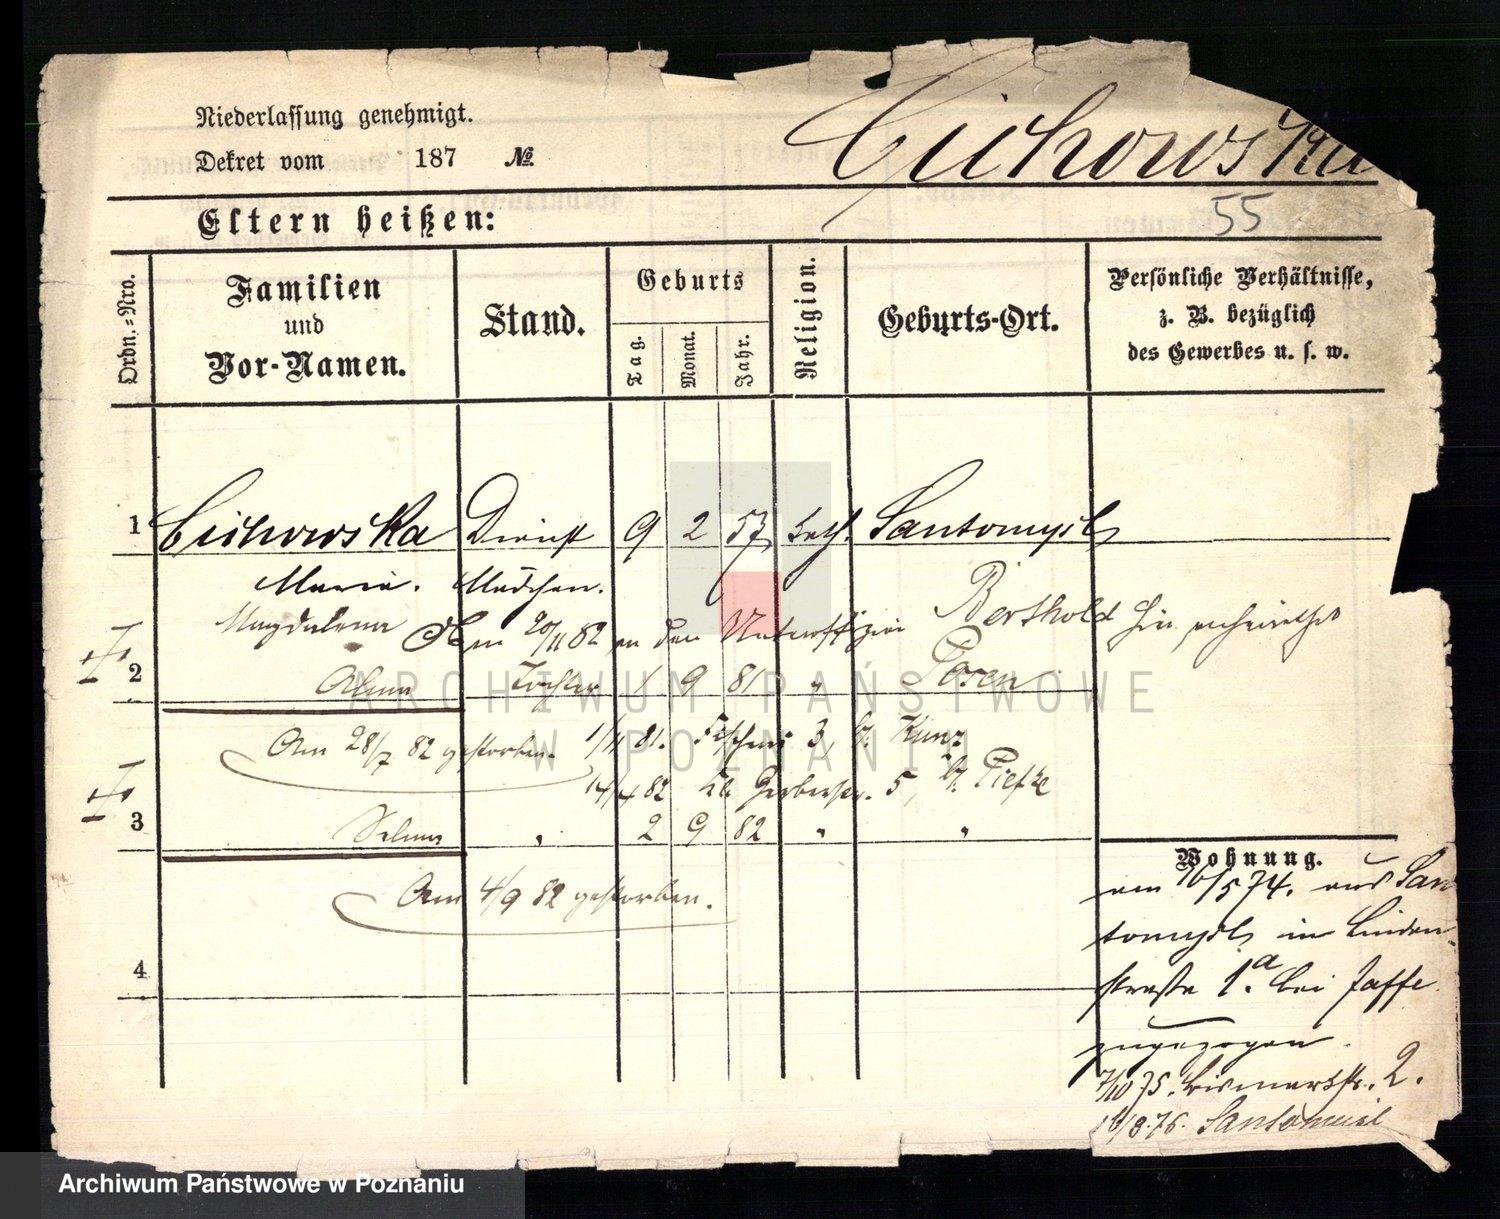 Niederlassung genehmigt.
Dekret vom 187 №
Cichowska
55
Eltern heißen:
Ordn.=Nro.
Familien
und
Vor-Namen.
Stand.
Geburts
Tag.
Monat.
Jahr.
Religion.
Geburts-Ort.
Persönliche Verhältnisse,
z. B. bezüglich
des Gewerbes u. s. w.
1 Cichowska Dienst 9 2 57 kath. Santomysl
Maria. Mädchen.
Magdalena Am 20/11 82 an den Unteroffizier Berthold hier verheirathet
2 Tochter 1 9 81 " Posen
Am 28/7 82 gestorben. 1/11 81. 3, b. Kunz
14/4 82 Kl. Gerberstr. 5, b. Piefke
3 Selma " 2 9 82 " "
Am 4/9 82 gestorben.
4
Wohnung.
am 16/5 74. aus San
tomysl in Linden
straße 1.a bei Jaffe
zugezogen.
7/10 75. Bismarckstr. 2.
16/8.76. Santomisl
ARCHIWUM PAŃSTWOWE
W POZNANIU
Archiwum Państwowe w Poznaniu